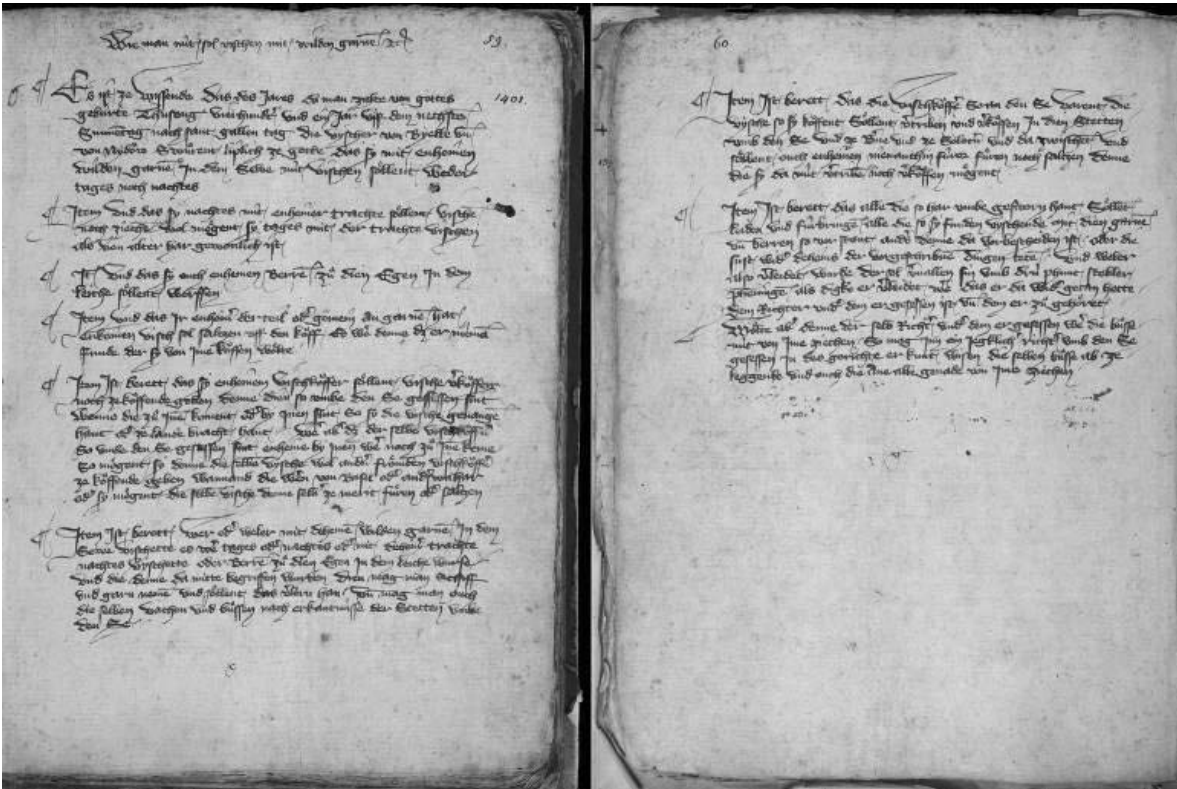 Wie man nit sol vischen mit wilden garnen etc. 59.
Es ist ze wissende Das des Jares do man zalte von gottes 1401.
geburte Thusong vierhundert und ein Jar uff dem nechsten
Sunnentag nach sant gallen tag die vischer von
von Swurent liplich ze gotte das sy mit enheinen
wilden garnen In dem Sewe nit vischen söllent weder
tages noch nachtes
Item und das sy nachtes mit enheiner trachte söllent vischen
noch ziechen wol mögent sy tages mit der trachte vischen
als von alter har gewonlich ist
Item und das sy ouch enheinen Berren zu dien Egen In dem
leiche söllent werffen
Item und das Ir enheiner der teil oder gemein an garne hat
enkeinen visch sol saltzen uff den köff Es were denne dz er nieman
funde der sy von Ime köffen wölte
Item Ist berett das sy enheinem vischköffer söllent vische
noch ze köffende geben denne dien so umbe den Se gesessen sint
wenne die zu Inen koment oder by Inen sint So sy die vische gevangen
hant oder ze lande bracht hant Were aber dz der selben vischköffer
So umbe den Se gesessen sint enheine by Inen were noch zu Inen keme
So mögent sy denne die selben vische wol andern frömden vischköffern
ze köffende geben wannand die weren von Basel oder anderswahar
oder sy mögent die selben vische denne selb ze merit füren oder saltzen
Item Ist berett wer oder weler mit deheinen wilden garnen In dem
Sewe vischette es were tages oder nachtes oder mit deheiner trachte
nachtes vischette oder Berren zu dien Egen In dem leiche wurfe
und die denne da mitte begriffen wurden Dien mag man schiff
und garn nemen und söllent das verlorn han Und mag man ouch
die selben vachen und büssen nach erkantnisse der Stetten umbe
den Se
60
Item Ist berett das die vischköffer So an den Se varent die
vische so sy köffent Söllent vertriben und verköffen In dien Stetten
umb den Se und ze und ze und da zwischent und
söllent ouch enheinen fürer füren noch saltzen denne
die sy da nit vertriben noch verköffen mögent
Item Ist berett das alle die so har umbe gesworn hant Söllent
leiden und fürbringen alle die so sy funden vischende mit dien garnen
und berren so vor stant anders denne da vorbescheiden ist oder die
sust wider deheins der vorgeschribnen dingen tete Und weler
also verleidet wurde der sol vervallen sin umb drü phunt stebler
phenningen als digke er verleidet wer das er da wider getan hette
dem Richter under dem er gesessen ist und dem er zu gehöret
Wölte aber denne der selb Richter under dem er gesessen were die büsse
nit von Ime ziechen So mag Inn ein jegklich richter umb den Se
gesessen in des gerichte er kunt umb die selben büsse
und ouch die ane alle gnade von Ime ziechen